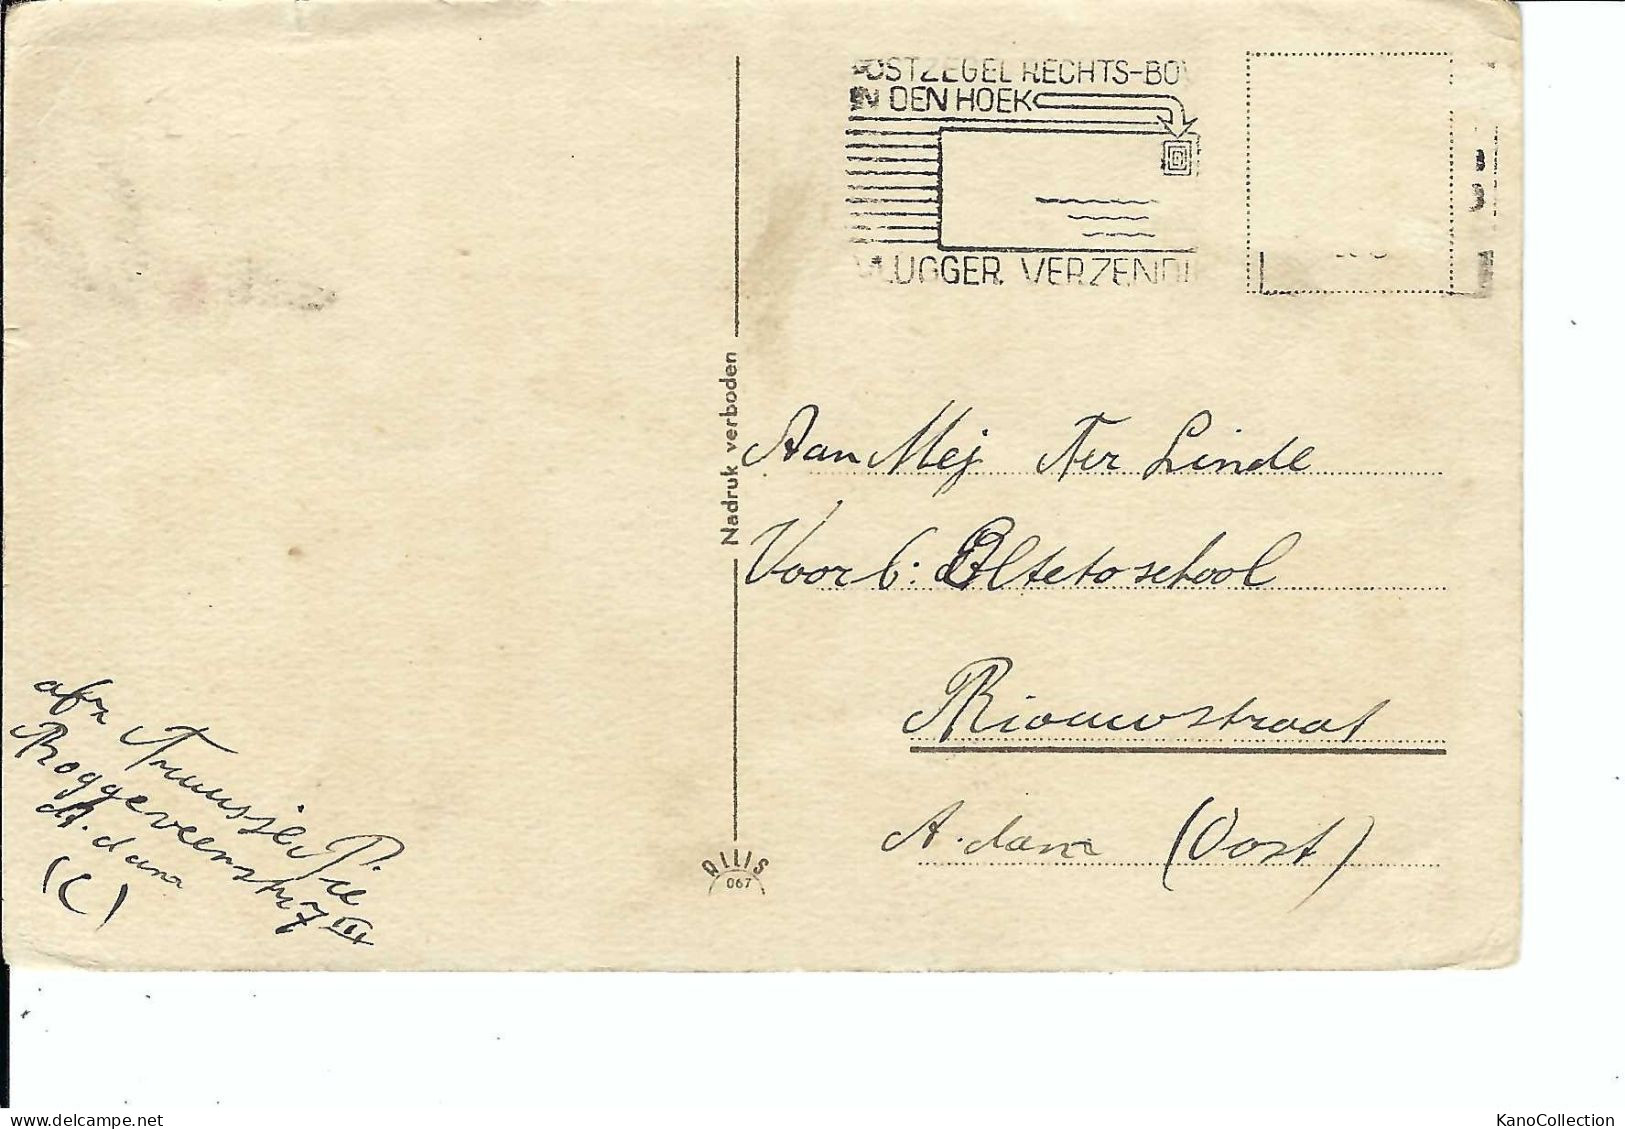 OSTZEGEL RECHTS-BO
IN DEN HOEK
VLUGGER VERZENDI
Nadruk verboden
Aan Mej Ter Linde
Voor b:
Riouwstraat
A.dam (Oost)
afz Truusje
Roggeveenstr 7 III
A.dam
(C)
ALLIS
067
delcampe.net
KanoCollection